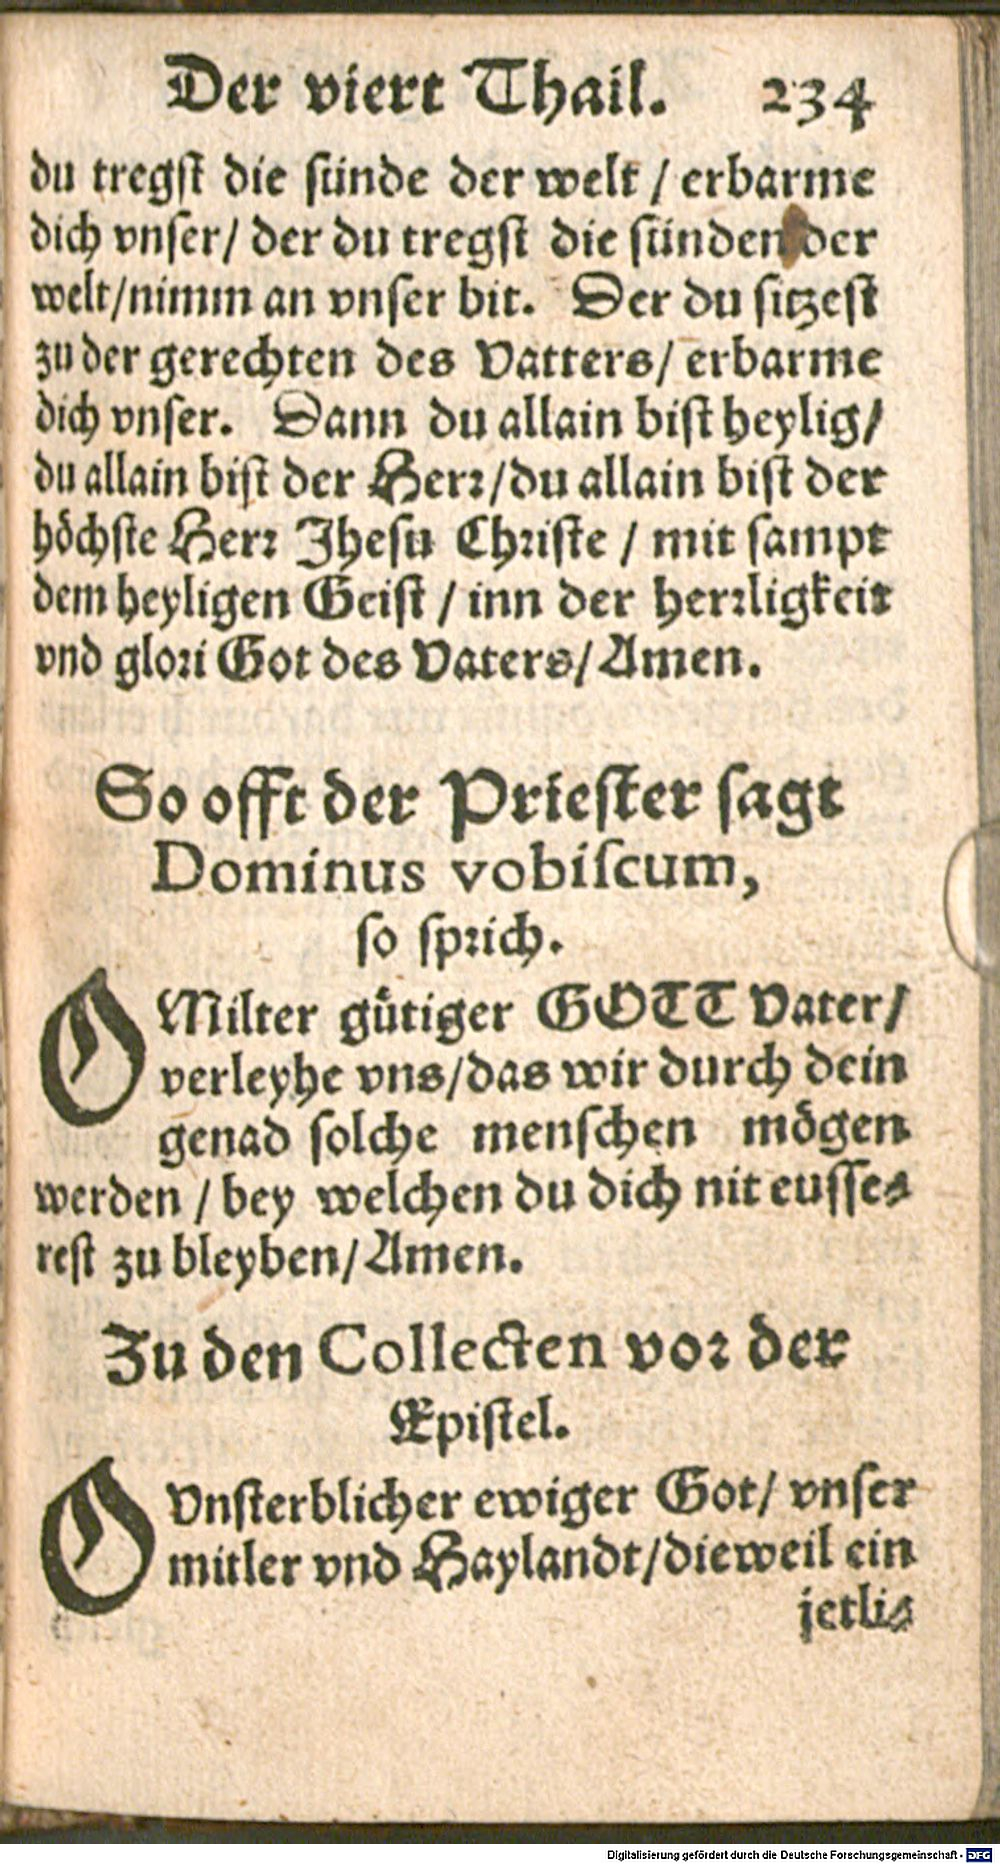 Der viert Thail. 234
du tregst die sünde der welt / erbarme
dich vnser/ der du tregst die sünden der
welt/nimm an vnser bit. Der du sitzest
zu der gerechten des Vatters/ erbarme
dich vnser. Dann du allain bist heylig/
du allain bist der Herr/du allain bist der
höchste Herr Jhesu Christe / mit sampt
dem heyligen Geist / inn der herrligkeit
vnd glori Got des Vaters/Amen.
So offt der Priester sagt
Dominus vobiſcum,
so sprich.
O Milter gütiger GOTT Vater/
verleyhe vns/das wir durch dein
genad solche menschen mögen
werden / bey welchen du dich nit eusse-
rest zu bleyben/Amen.
Zu den Collecten vor der
Epistel.
O Vnsterblicher ewiger Got/ vnser
mitler vnd Haylandt/dieweil ein
jetli-
Digitalisierung gefördert durch die Deutsche Forschungsgemeinschaft - DFG